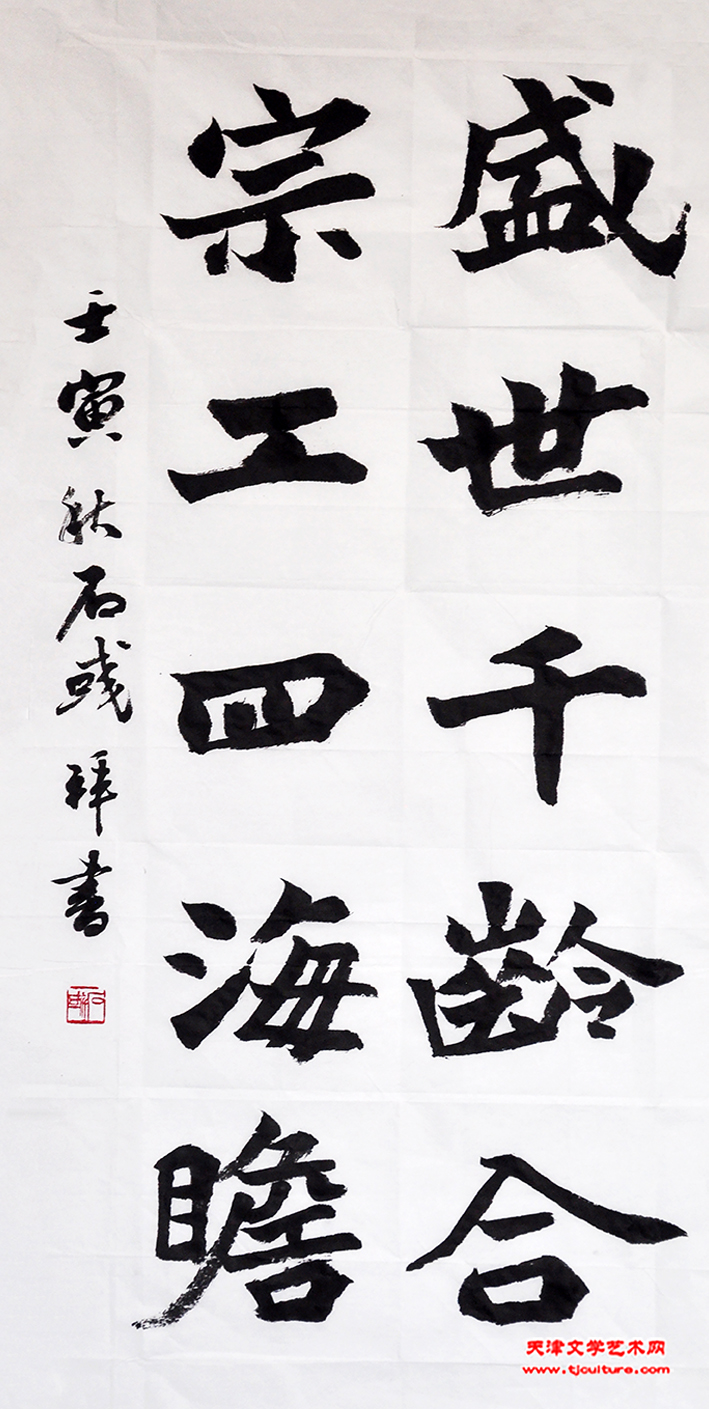 盛世千齡合
宗工四海瞻
壬寅秋石彧拜書
天津文学艺术网
www.tjculture.com